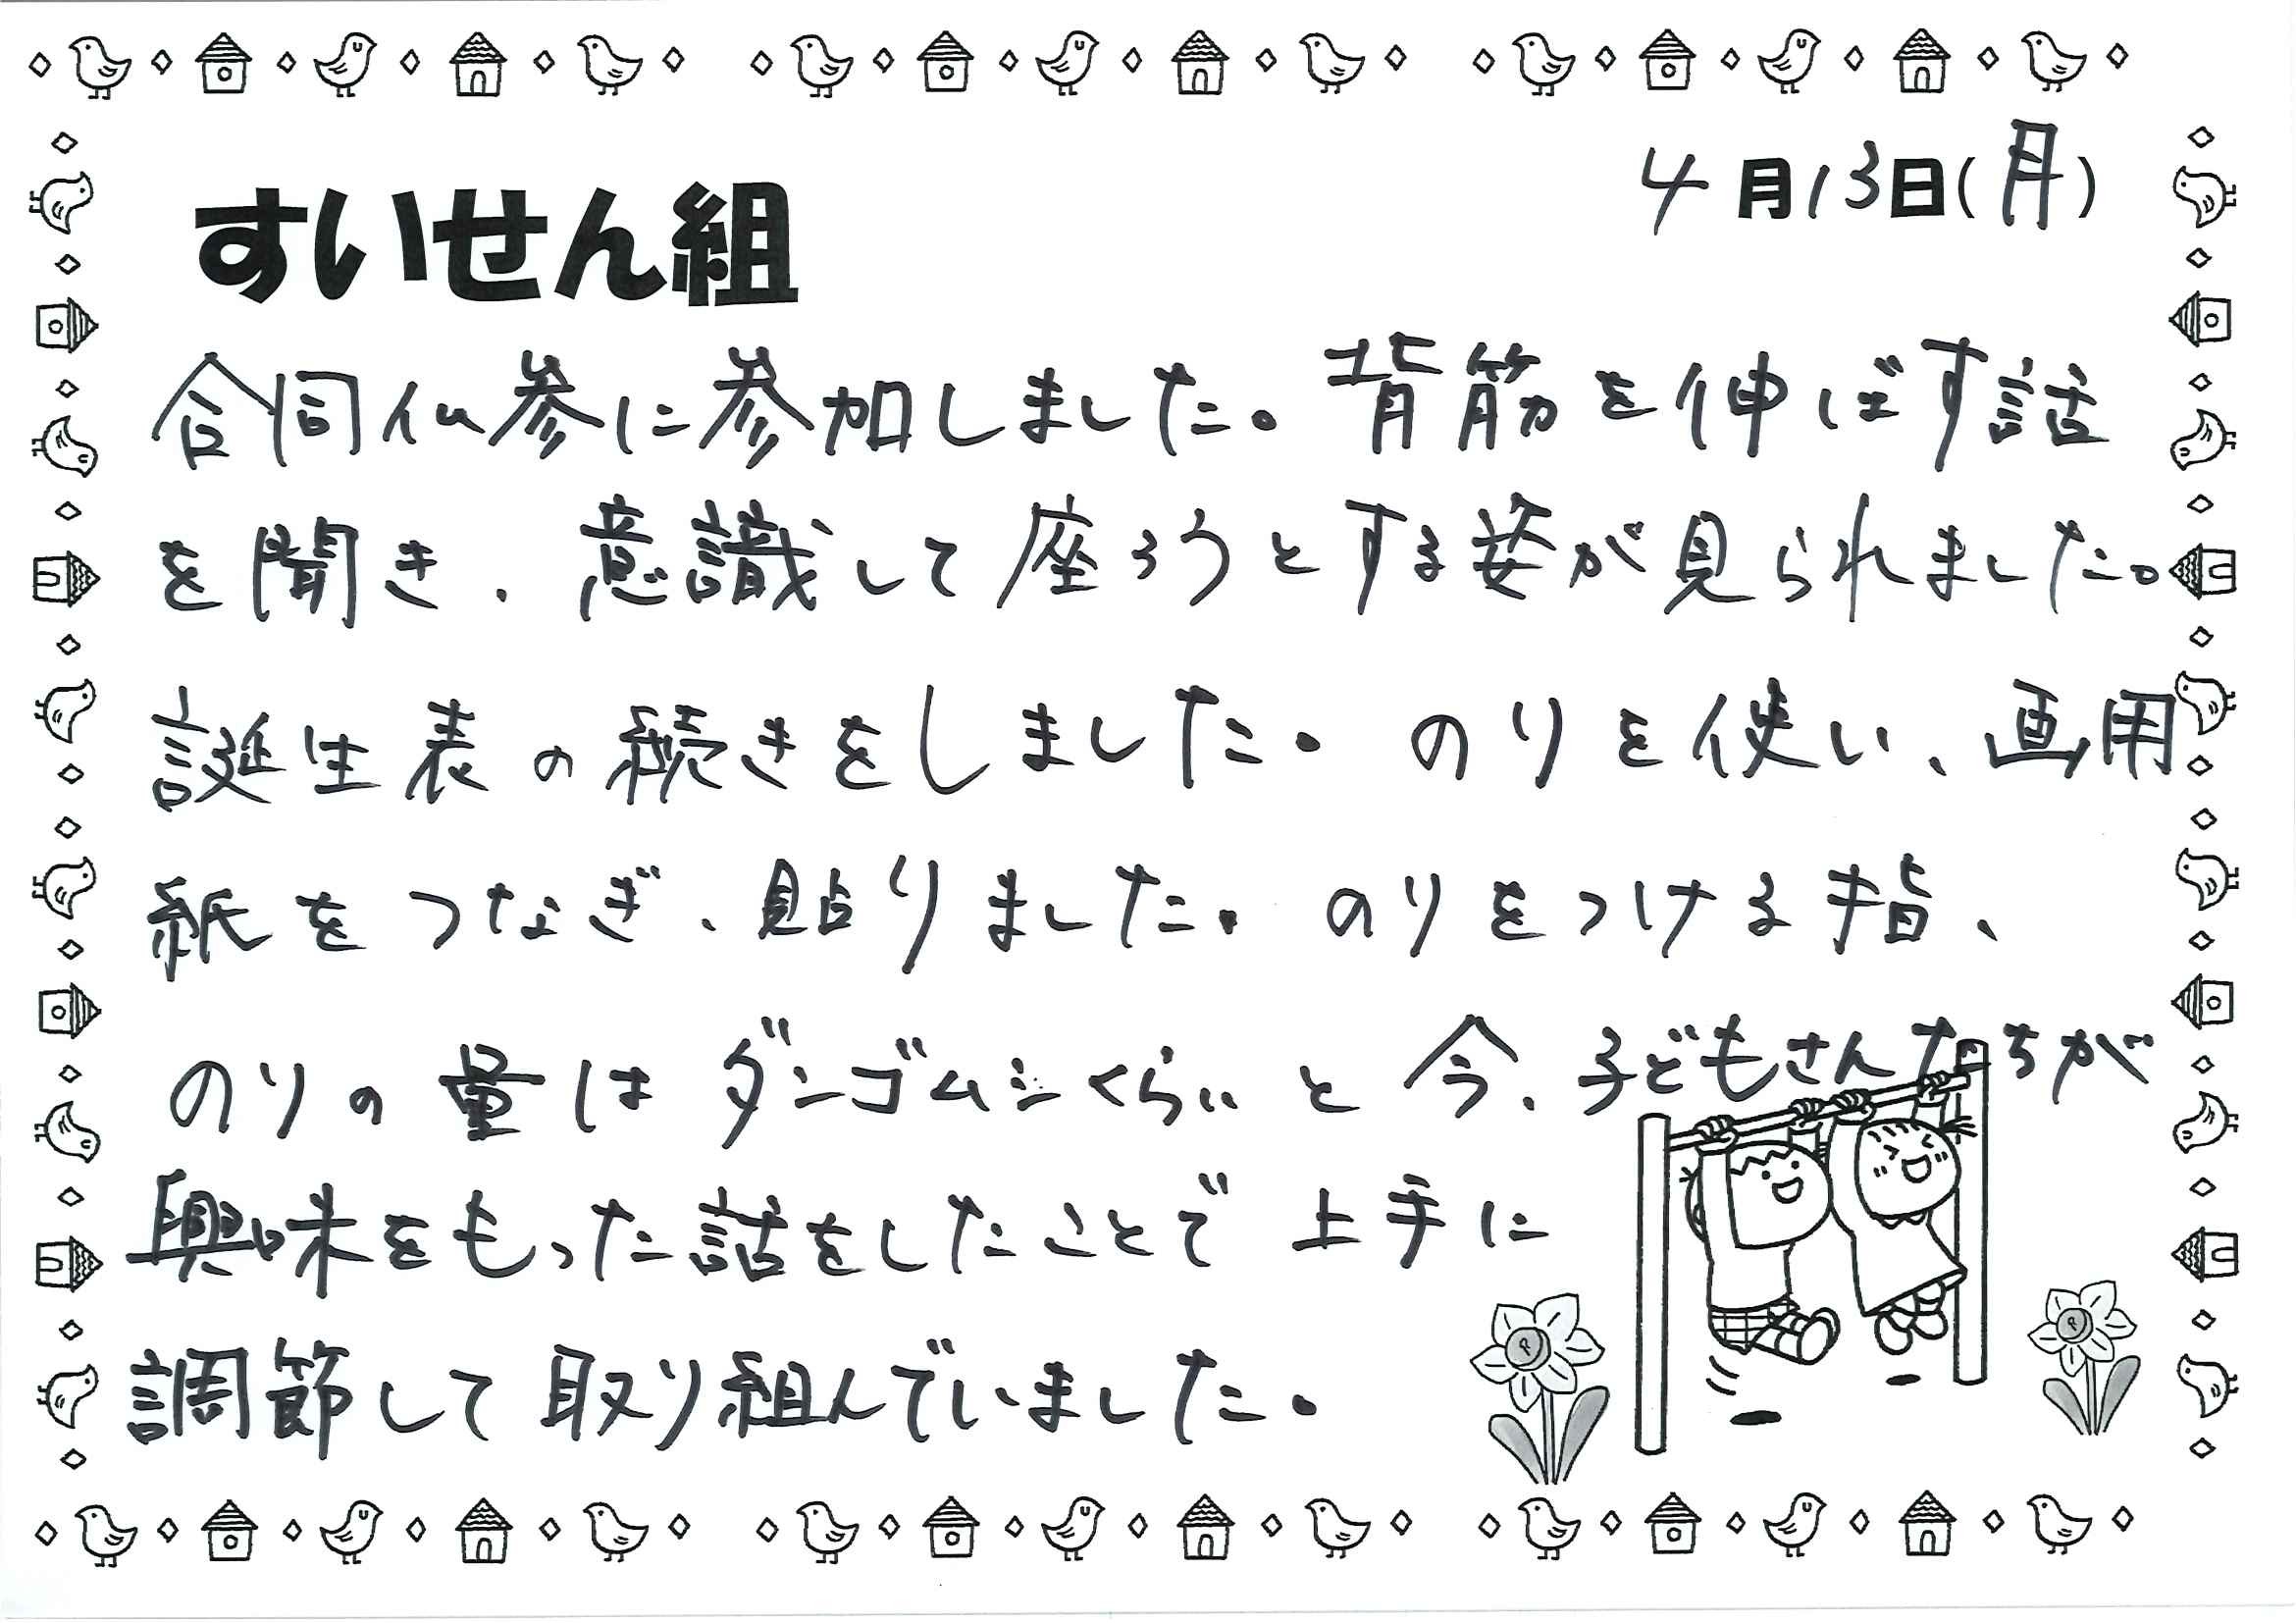 4月13日(月)
すいせん組
合同仏参に参加しました。背筋を伸ばす話
を聞き、意識して座ろうとする姿が見られました。
誕生表の続きをしました。のりを使い、画用
紙をつなぎ、貼りました。のりをつける指、
のりの量はダンゴムシくらいと今、子どもさんたちが
興味をもった話をしたことで上手に
調節して取り組んでいました。